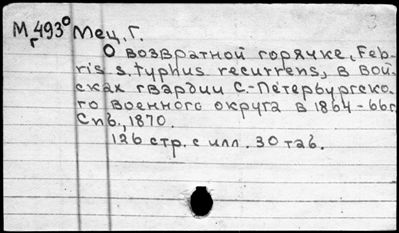 3
М 493⁰ Мец. Г.
г
О возвратной горячке, Feb-
ris s. typhus recurrens, в вой-
сках гвардии С.-Петербургско-
го военного округа в 1864-66г.
Спб., 1870.
126 стр. с илл. 30 таб.